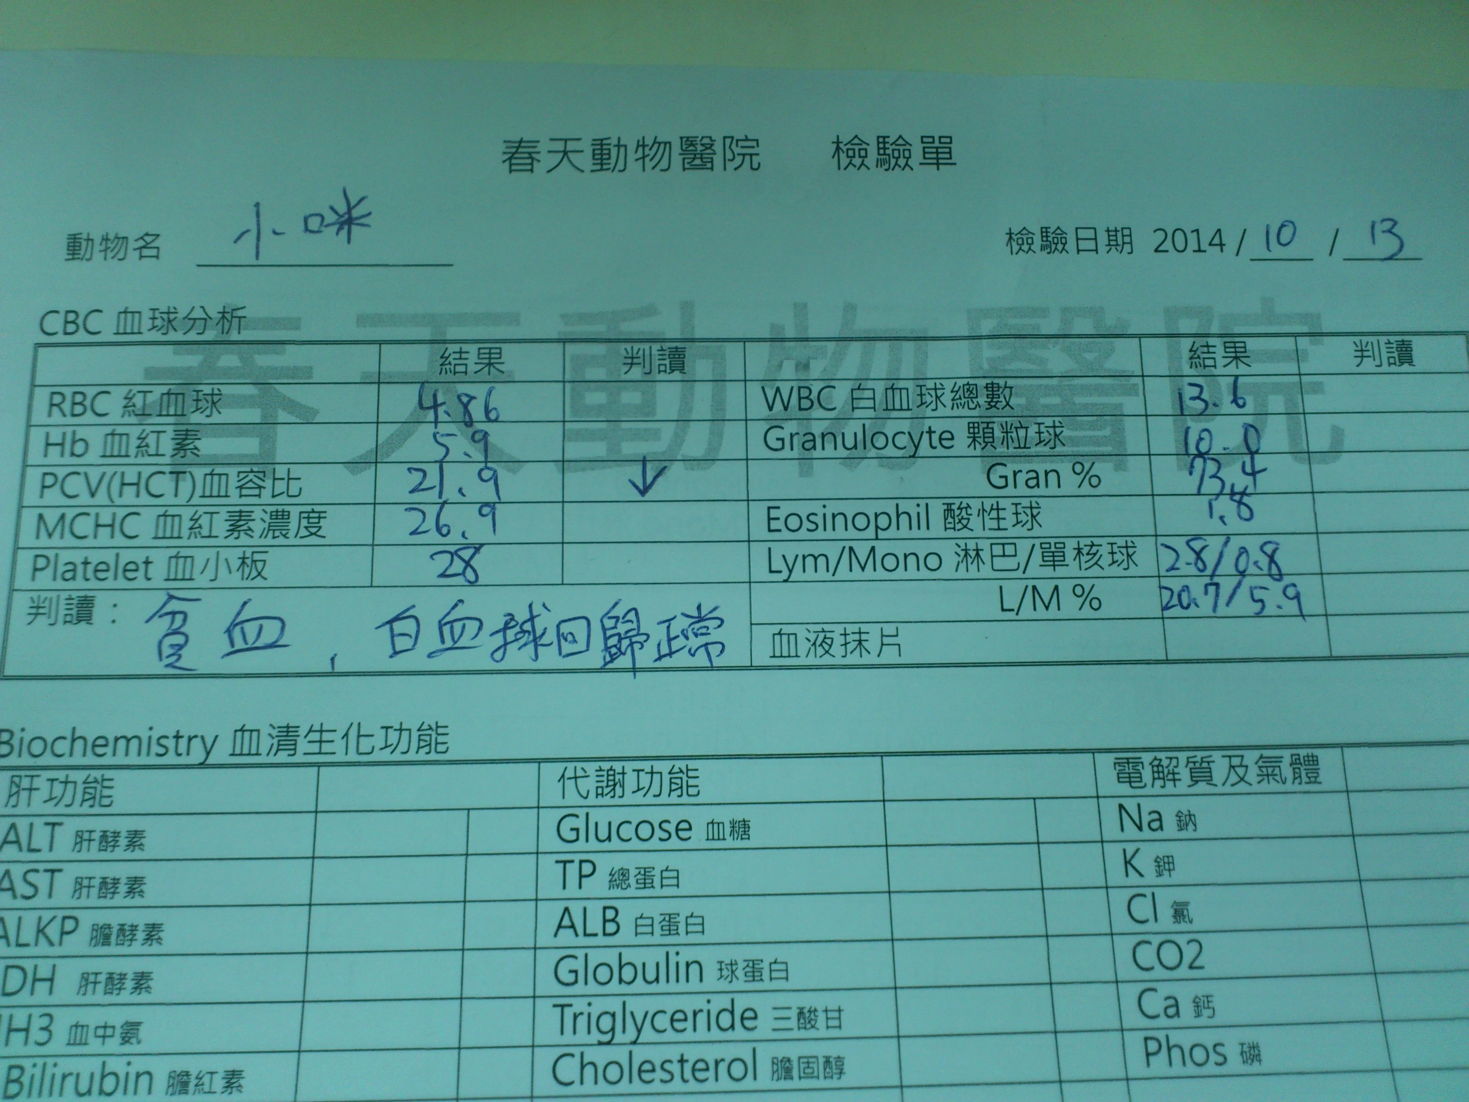 春天動物醫院 檢驗單
動物名 小咪 檢驗日期 2014 / 10 / 13
CBC 血球分析
春天動物醫院
結果 判讀 結果 判讀
RBC 紅血球 4.86 WBC 白血球總數 13.6
Hb 血紅素 5.9 Granulocyte 顆粒球 10.0
PCV(HCT)血容比 21.9 ↓ Gran % 73.4
MCHC 血紅素濃度 26.9 Eosinophil 酸性球 1.8
Platelet 血小板 28 Lym/Mono 淋巴/單核球 2.8/0.8
判讀： 貧血，白血球回歸正常 L/M % 20.7/5.9
血液抹片
Biochemistry 血清生化功能
肝功能 代謝功能 電解質及氣體
ALT 肝酵素 Glucose 血糖 Na 鈉
AST 肝酵素 TP 總蛋白 K 鉀
ALKP 膽酵素 ALB 白蛋白 Cl 氯
DH 肝酵素 Globulin 球蛋白 CO2
H3 血中氨 Triglyceride 三酸甘 Ca 鈣
Bilirubin 膽紅素 Cholesterol 膽固醇 Phos 磷